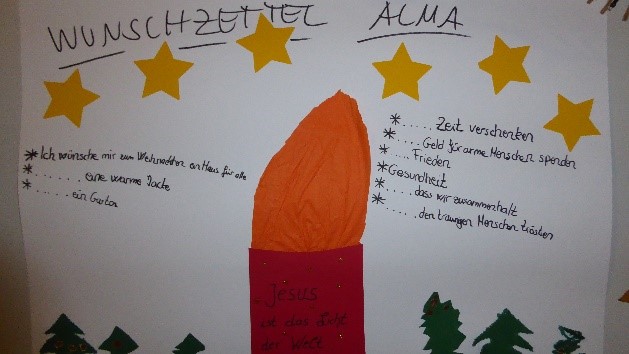 WUNSCHZETTEL ALMA
* Ich wünsche mir zum Weihnachten ein Haus für alle
* ......... eine warme Jacke
* ....... ein Guitar
* ...... Zeit verschenken
* ...... Geld für arme Menschen spenden
* .... Frieden
* Gesundheit
* ..... dass wir zusammenhalt
* ...... den traurigen Menschen trösten
Jesus
ist das Licht
der Welt